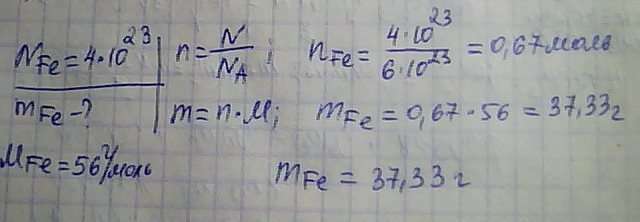 N_Fe = 4·10^23 | n = N/N_A ; n_Fe = 4·10^23 / 6·10^23 = 0,67 моль
m_Fe - ? | m = n·M; m_Fe = 0,67·56 = 37,33 г
M_Fe = 56 г/моль m_Fe = 37,33 г